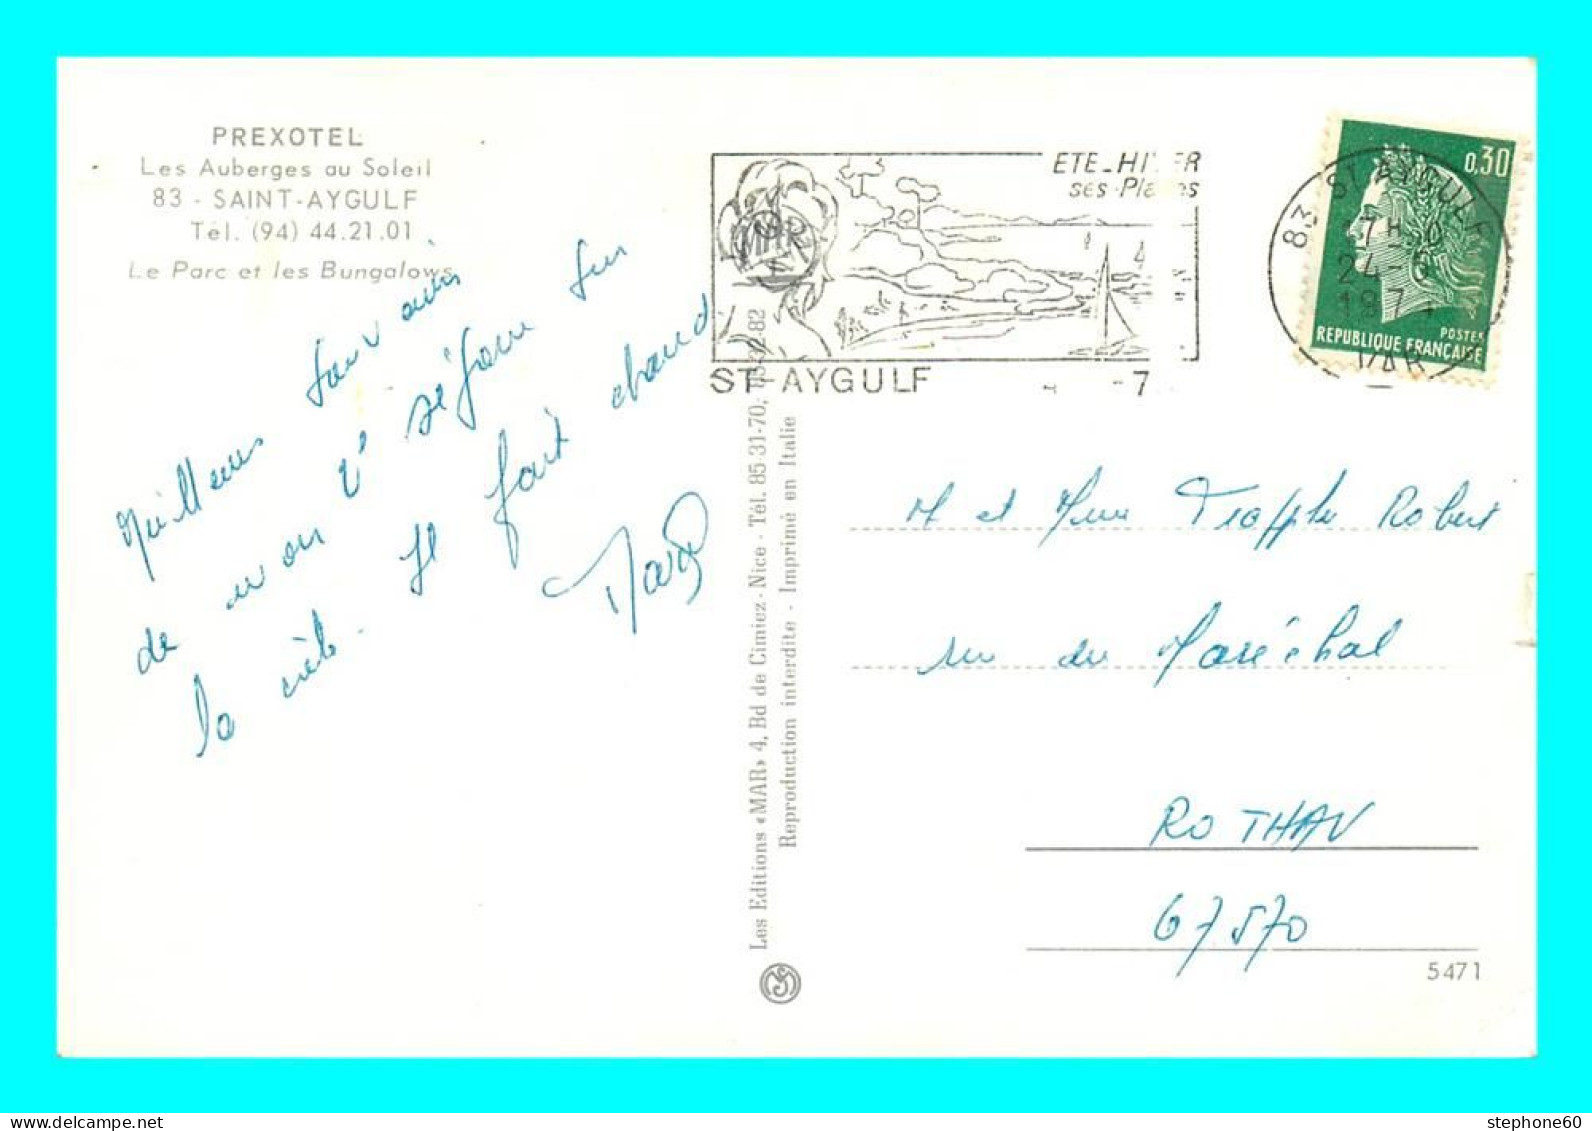 PREXOTEL
Les Auberges au Soleil
83 - SAINT-AYGULF
Tél. (94) 44.21.01
Le Parc et les Bungalows
de mon
séjour sur
la côte. Il fait chaud
Les Editions «MAR» 4, Bd de Cimiez - Nice - Tél. 85-31-70;
Reproduction interdite - Imprimé en Italie
ETE_HIVER
ses Plages
MAR
ST-AYGULF
83 ST AYGULF
VAR
0,30
POSTES
REPUBLIQUE FRANÇAISE
M et Mme Robert
rue du Maréchal
ROTHAU
67570
5471
stephone60